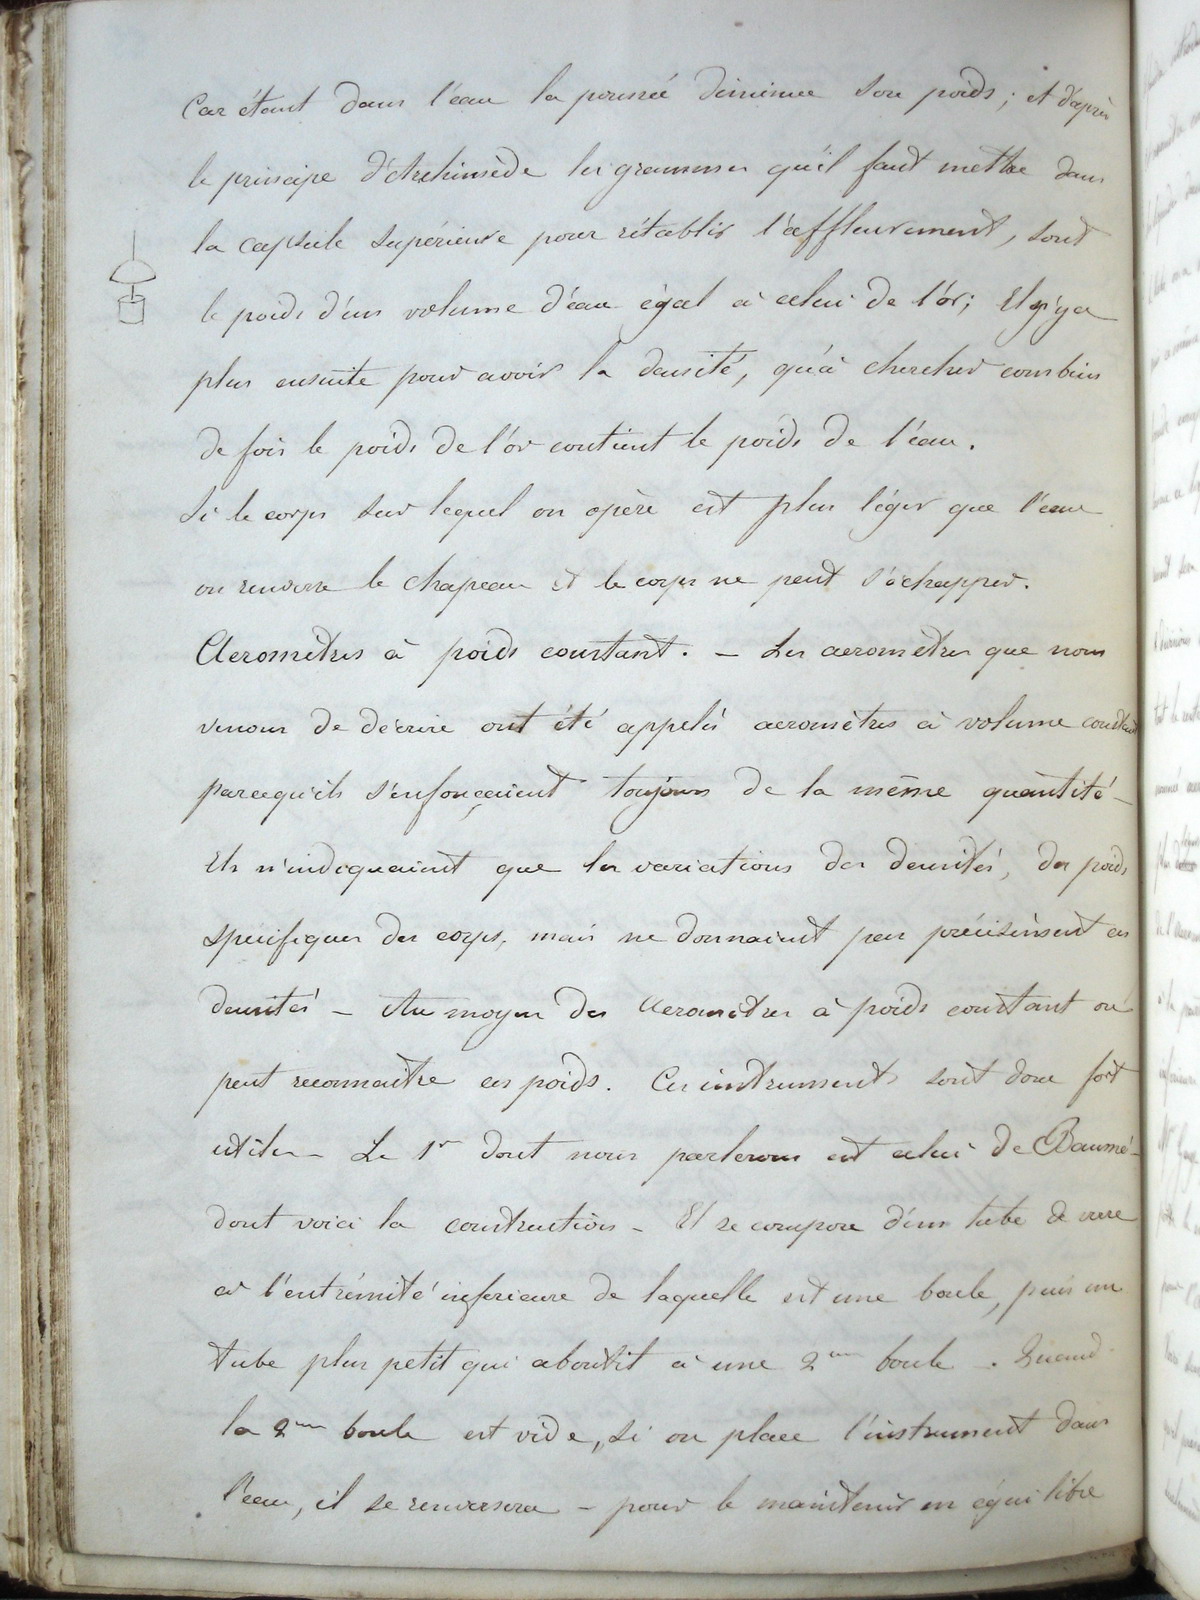 Car étant dans l'eau la poussée diminue son poids ; et d'après
le principe d'Archimède les grammes qu'il faut mettre dans
la capsule supérieure pour rétablir l'affleurement, sont
le poids d'un volume d'eau égal à celui de l'or ; Il n'y a
plus ensuite pour avoir la densité, qu'à chercher combien
de fois le poids de l'or contient le poids de l'eau.
Si le corps sur lequel on opère est plus léger que l'eau
on renverse le chapeau et le corps ne peut s'échapper.
Aeromètres à poids constant. – Les aeromètres que nous
venons de décrire ont été appelés aeromètres à volume constant
parcequ'ils s'enfonçaient toujours de la même quantité –
Ils n'indiquaient que les variations des densités, des poids
spécifiques des corps, mais ne donnaient pas précisément ces
densités – Au moyen des Aeromètres à poids constant on
peut reconnaître ces poids. Ces instruments sont donc fort
utiles – Le 1er dont nous parlerons est celui de Baumé –
dont voici la construction – Il se compose d'un tube de verre
à l'extrémité inférieure de laquelle est une boule, puis un
tube plus petit qui aboutit à une 2eme boule. Quand
la 2eme boule est vide, si on place l'instrument dans
l'eau, il se renversera – pour le maintenir en équilibre